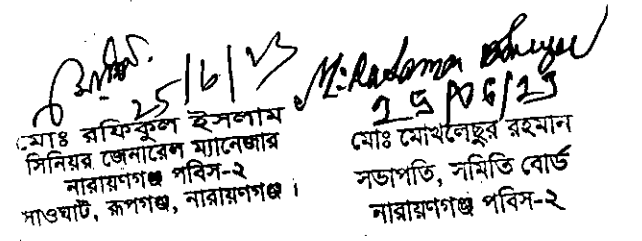 25/6/23
মোঃ রফিকুল ইসলাম
সিনিয়র জেনারেল ম্যানেজার
নারায়ণগঞ্জ পবিস-২
সাওঘাট, রূপগঞ্জ, নারায়ণগঞ্জ।
25/06/23
মোঃ মোখলেছুর রহমান
সভাপতি, সমিতি বোর্ড
নারায়ণগঞ্জ পবিস-২